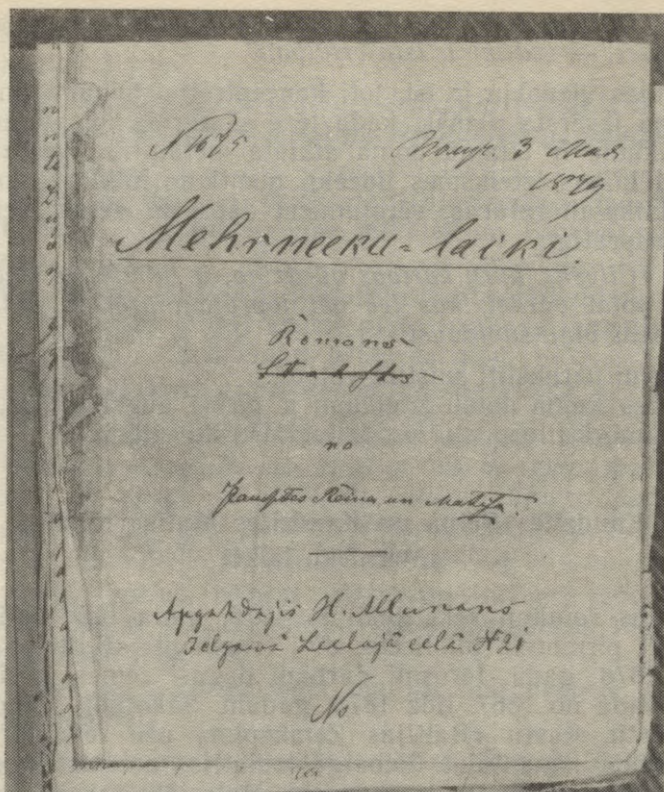 N 1675
Получ. 3 Мая
1879
Mehrneeku-laiki.
Romans
Stahsts
no
Kaupjes Reiņa un Matiſa.
Apgahdajis H. Allunans
Jelgawâ Leelajâ eelâ N 21
No